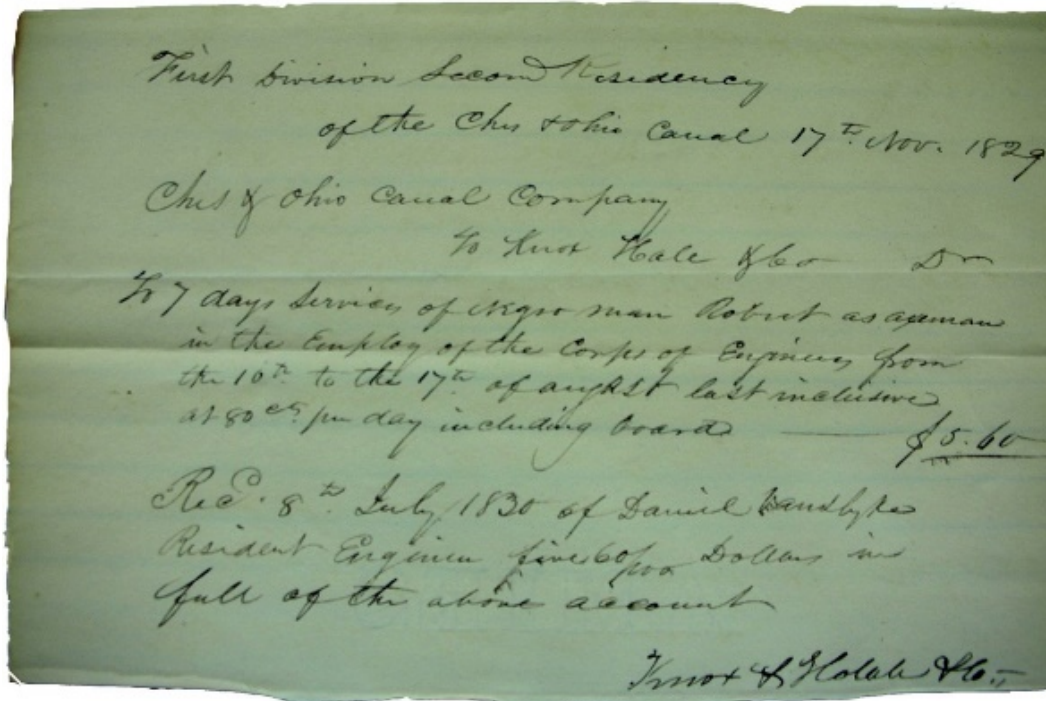 First Division Second Residency
of the Ches & Ohio Canal 17th Nov. 1829
Ches & Ohio Canal Company
To Knox Hale & Co Dr
To 7 days Services of Negro man Robert as axman
in the Employ of the Corps of Engineers from
the 10th to the 17th of augst last inclusive
at 80 cts per day including board $5.60
Recd. 8th July 1830 of Daniel
Resident Engineer five 60/100 Dollars in
full of the above account
Knox & Co